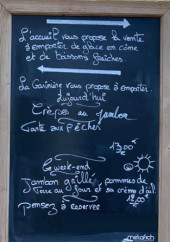 L'accueil vous propose la vente
à emporter de glace en cône
et de boissons fraîches
La Cuisinière vous propose à emporter
aujourd'hui
Crêpes au jambon
Tarte aux pêches
13,00€
Ce week-end
Jambon grillé, pommes de
terre au jour et sa crème d'ail
12,00€
pensez à réserver